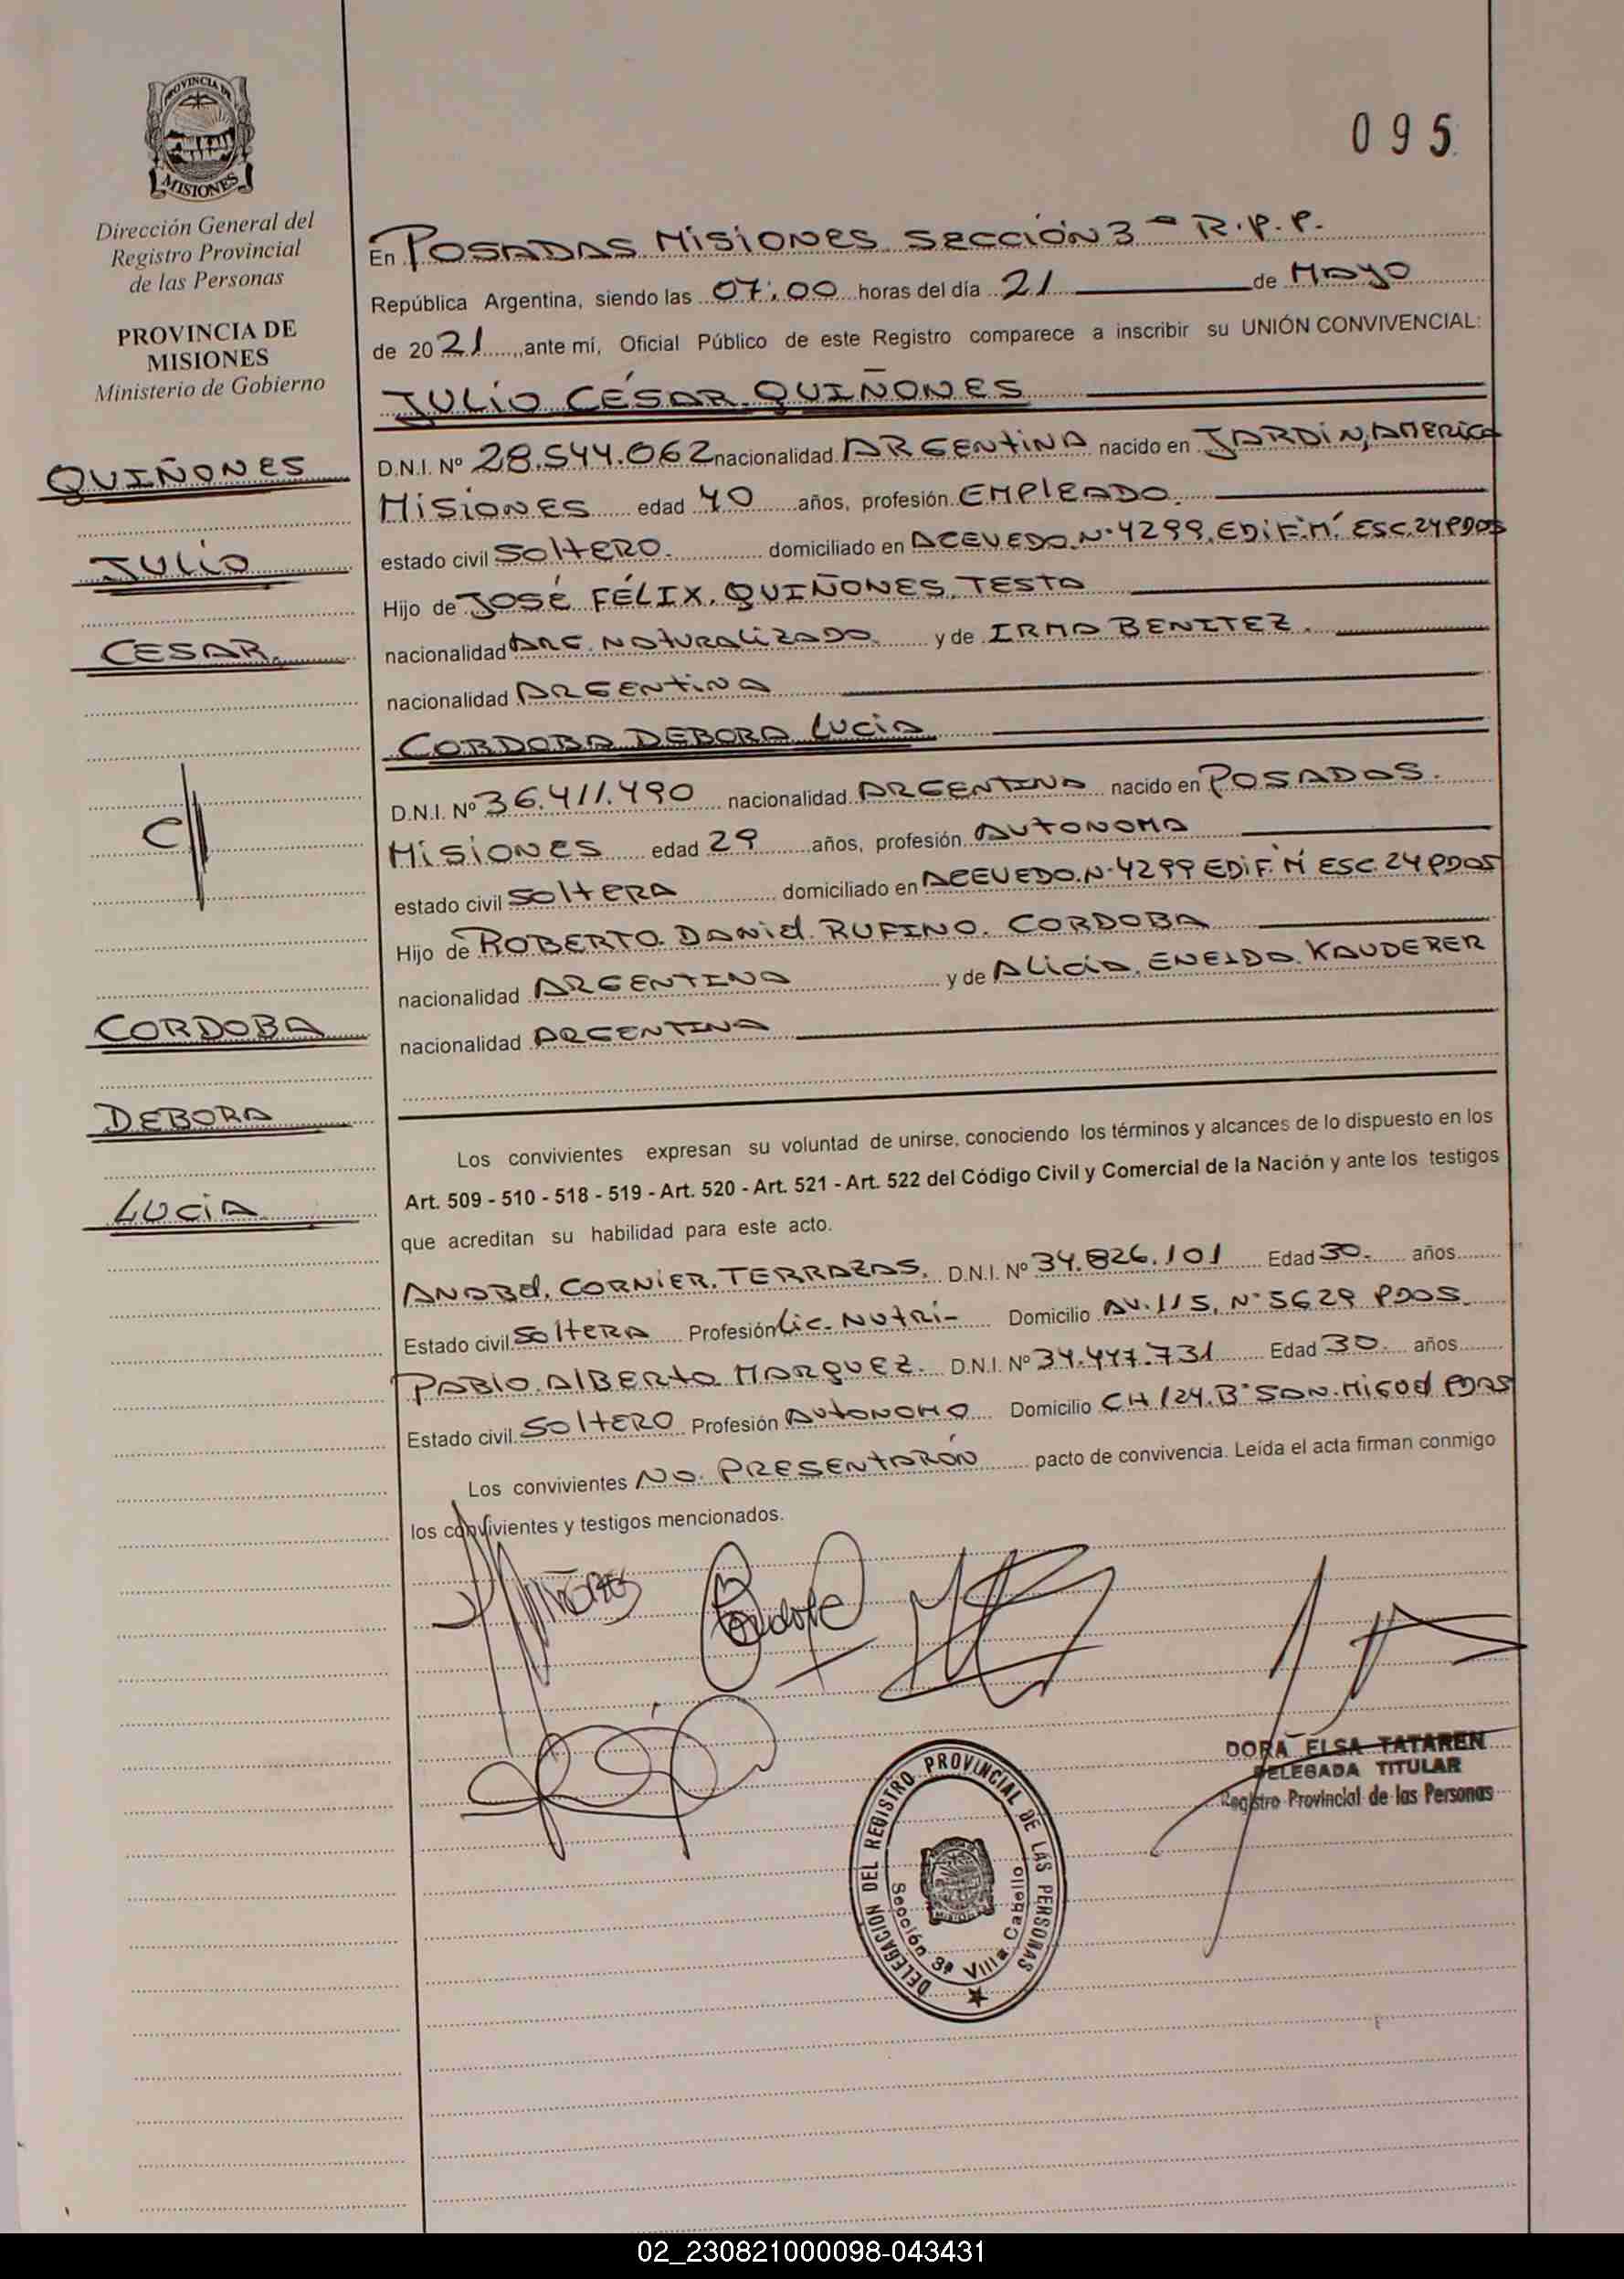 095
PROVINCIA DE
MISIONES
Dirección General del
Registro Provincial
de las Personas
PROVINCIA DE
MISIONES
Ministerio de Gobierno
QUIÑONES
JULIO
CESAR
C//
CORDOBA
DEBORA
LUCIA
En POSADAS MISIONES SECCIÓN 3ª R.P.P.
República Argentina, siendo las 07:00 horas del día 21 de MAYO
de 2021, ante mí, Oficial Público de este Registro comparece a inscribir su UNIÓN CONVIVENCIAL:
JULIO CÉSAR QUIÑONES
D.N.I. Nº 28.544.062 nacionalidad ARGENTINA nacido en JARDIN, AMERICA
MISIONES edad 40 años, profesión EMPLEADO.
estado civil SOLTERO. domiciliado en ACEVEDO. Nº 4299. EDIF. M. ESC. 24 PDAS
Hijo de JOSÉ FÉLIX. QUIÑONES. TESTA
nacionalidad ARG. NATURALIZADO. y de IRMA BENITEZ.
nacionalidad ARGENTINA
CORDOBA DEBORA LUCIA
D.N.I. Nº 36.411.490 nacionalidad ARGENTINA nacido en POSADAS.
MISIONES edad 29 años, profesión AUTONOMA
estado civil SOLTERA domiciliado en ACEVEDO. Nº 4299 EDIF. M ESC. 24 PDAS
Hijo de ROBERTO DANIEL RUFINO. CORDOBA
nacionalidad ARGENTINA y de ALICIA. ENEIDA. KAUDERER
nacionalidad ARGENTINA
Los convivientes expresan su voluntad de unirse, conociendo los términos y alcances de lo dispuesto en los
Art. 509 - 510 - 518 - 519 - Art. 520 - Art. 521 - Art. 522 del Código Civil y Comercial de la Nación y ante los testigos
que acreditan su habilidad para este acto.
ANABEL. CORNIER. TERRAZAS. D.N.I. Nº 34.826.101 Edad 30. años
Estado civil SOLTERA Profesión LIC. NUTRI- Domicilio AV. 115. Nº 5629 PDAS.
PABLO. ALBERTO MARQUEZ. D.N.I. Nº 34.447.731 Edad 30. años
Estado civil SOLTERO Profesión AUTONOMO Domicilio CH 124. Bº SAN. MIGUEL PDAS
Los convivientes NO. PRESENTARÓN pacto de convivencia. Leída el acta firman conmigo
los convivientes y testigos mencionados.
DORA ELSA TATAREN
DELEGADA TITULAR
Registro Provincial de las Personas
DELEGACION DEL REGISTRO PROVINCIAL DE LAS PERSONAS
Sección 3ª Villa Cabello
02_230821000098-043431